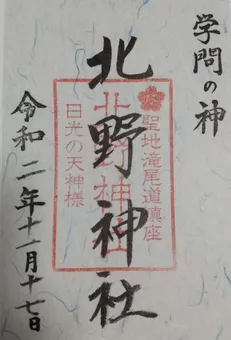 学問の神
聖地滝尾道鎮座
北野神社
北野神社
日光の天神様
令和二年十一月十七日